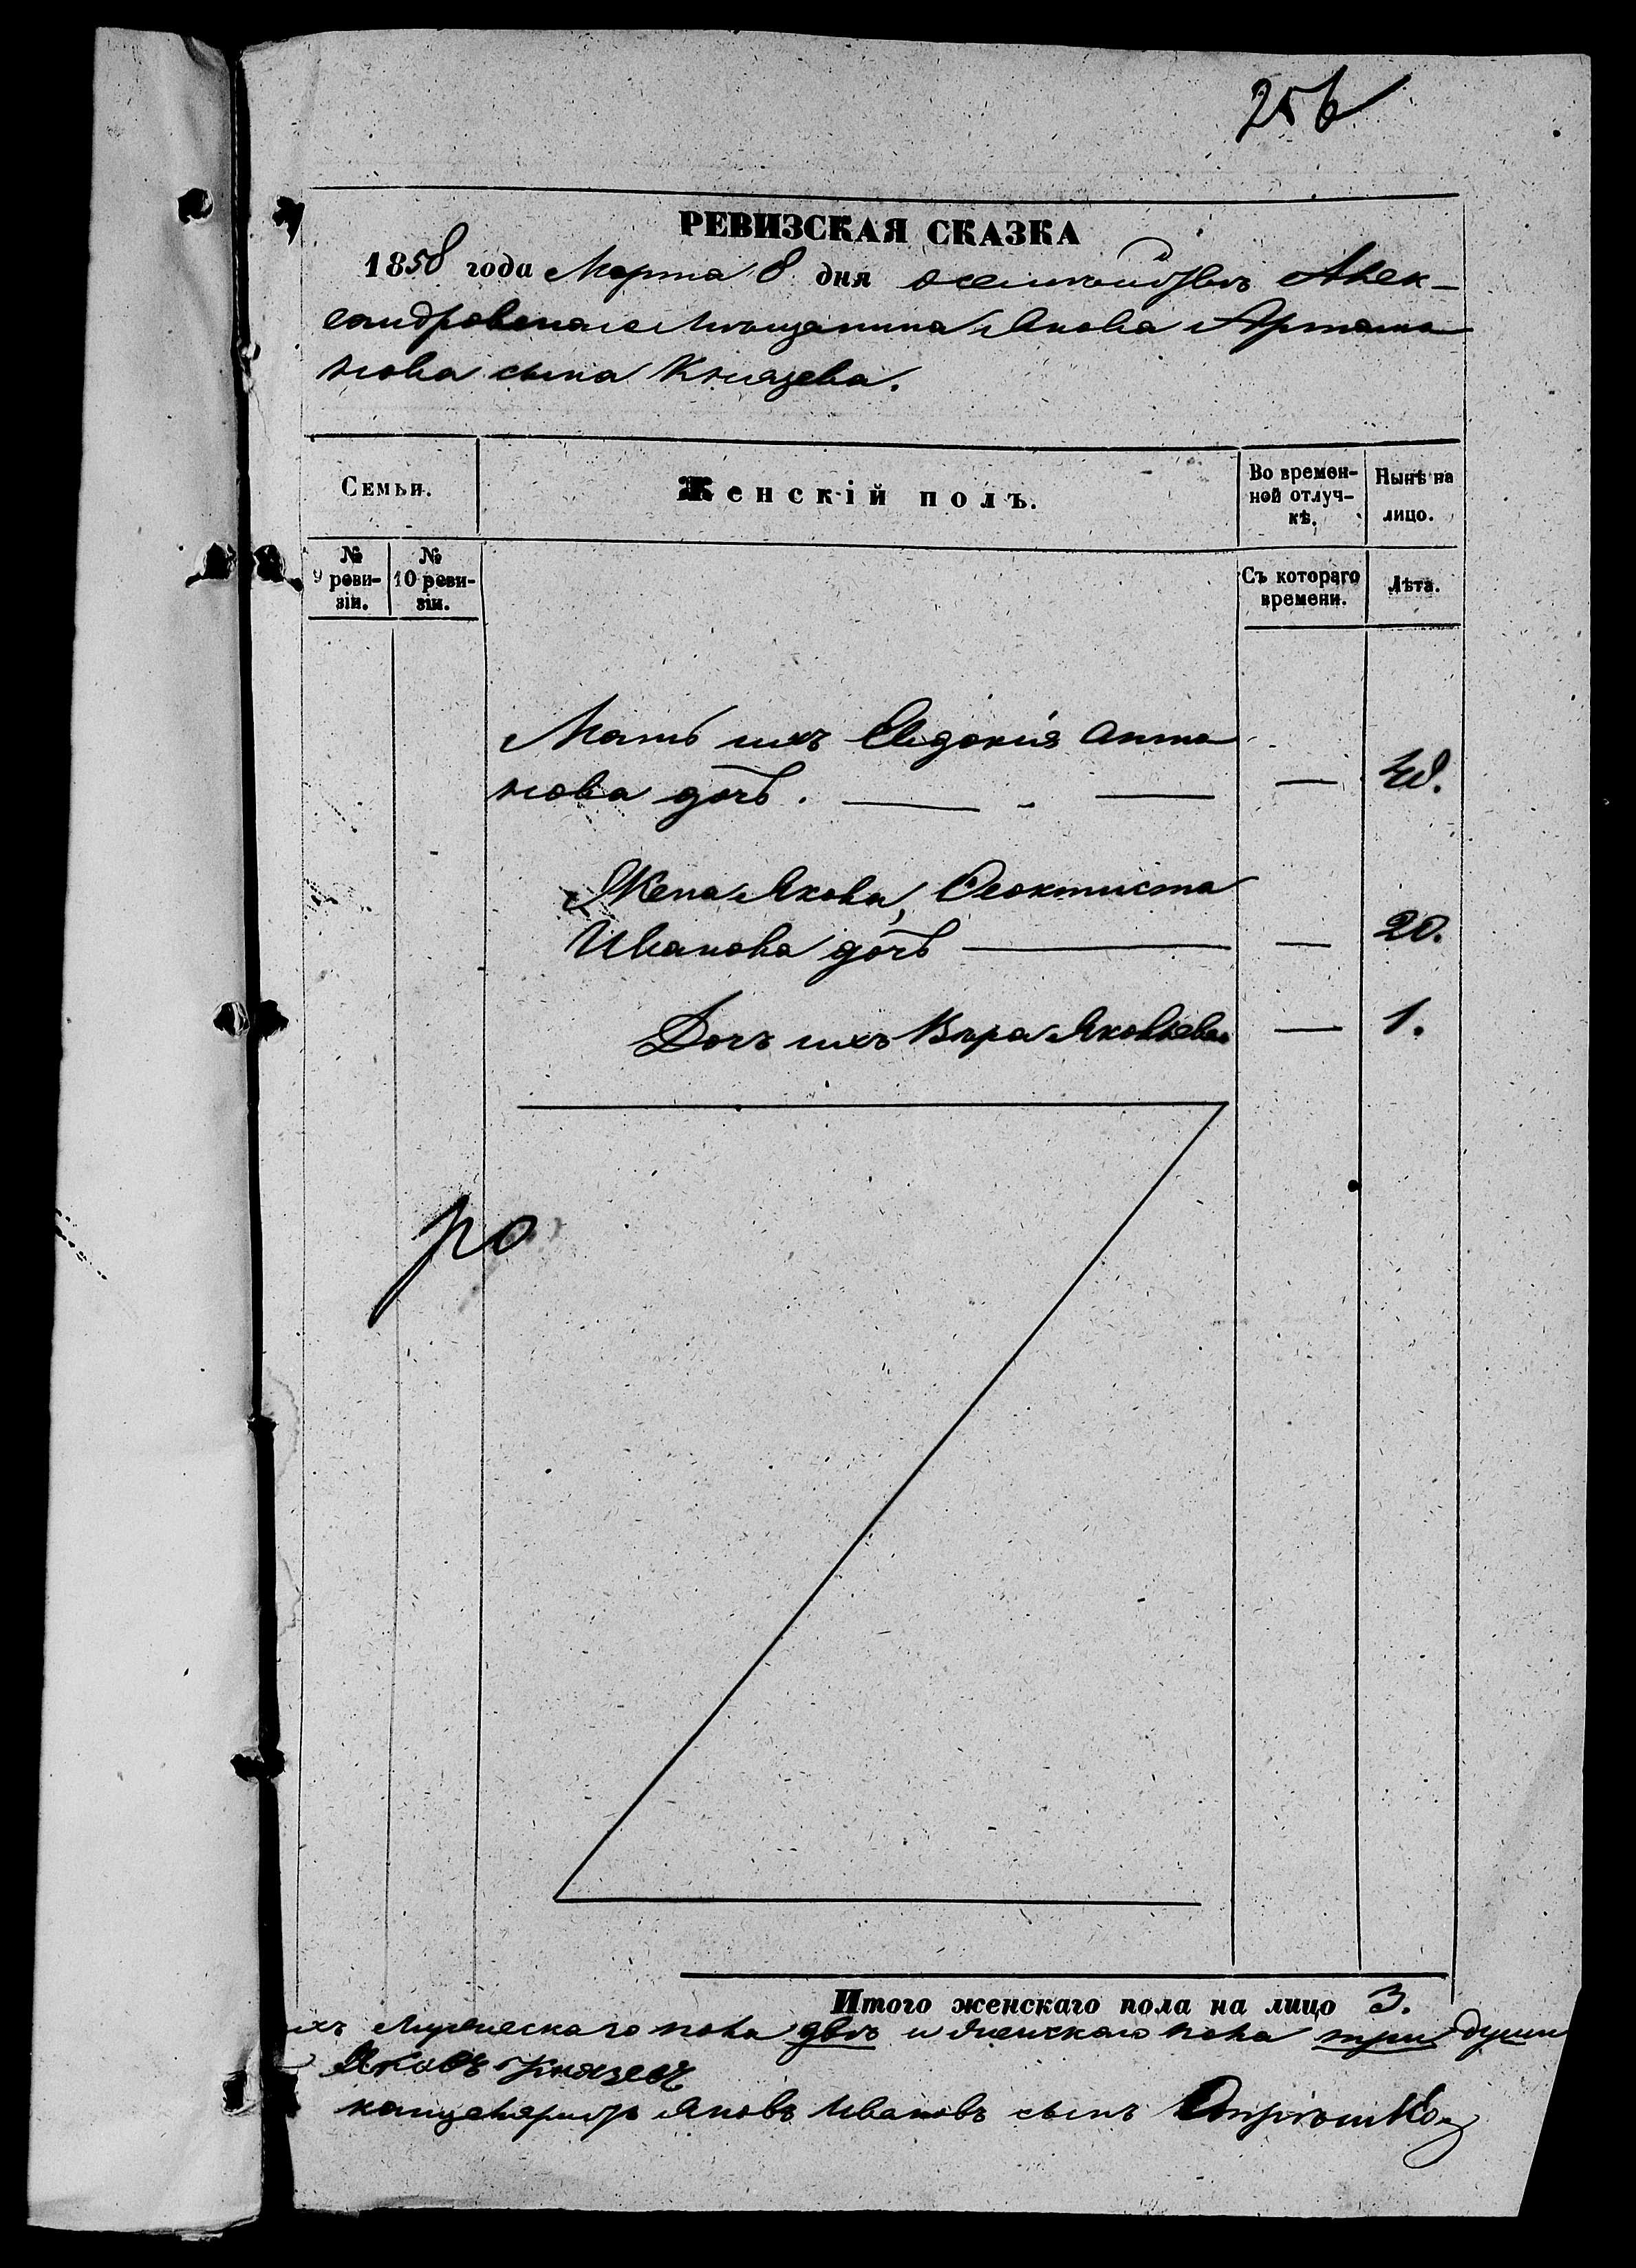 256
РЕВИЗСКАЯ СКАЗКА
1858 года Марта 8 дня о семействѣ Алек-
сандровскаго мѣщанина Якова Артамо
нова сына Князева.
Семьи.
Женскій полъ.
Во времен-
ной отлуч-
кѣ.
Нынѣ на
лицо.
№
9 реви-
зіи.
№
10 реви-
зіи.
Съ котораго
времени.
Лѣта.
Мать ихъ Евдокія Анто
нова дочь. — —
Жена Якова, Феоктиста
Иванова дочь — — 20.
Дочь ихъ Вѣра Яковлева — 1.
Итого женскаго пола на лицо 3.
ихъ мужескаго пола двѣ и женскаго пола три души
Яковъ Князевъ
канцеляристъ Яковъ Ивановъ сынъ